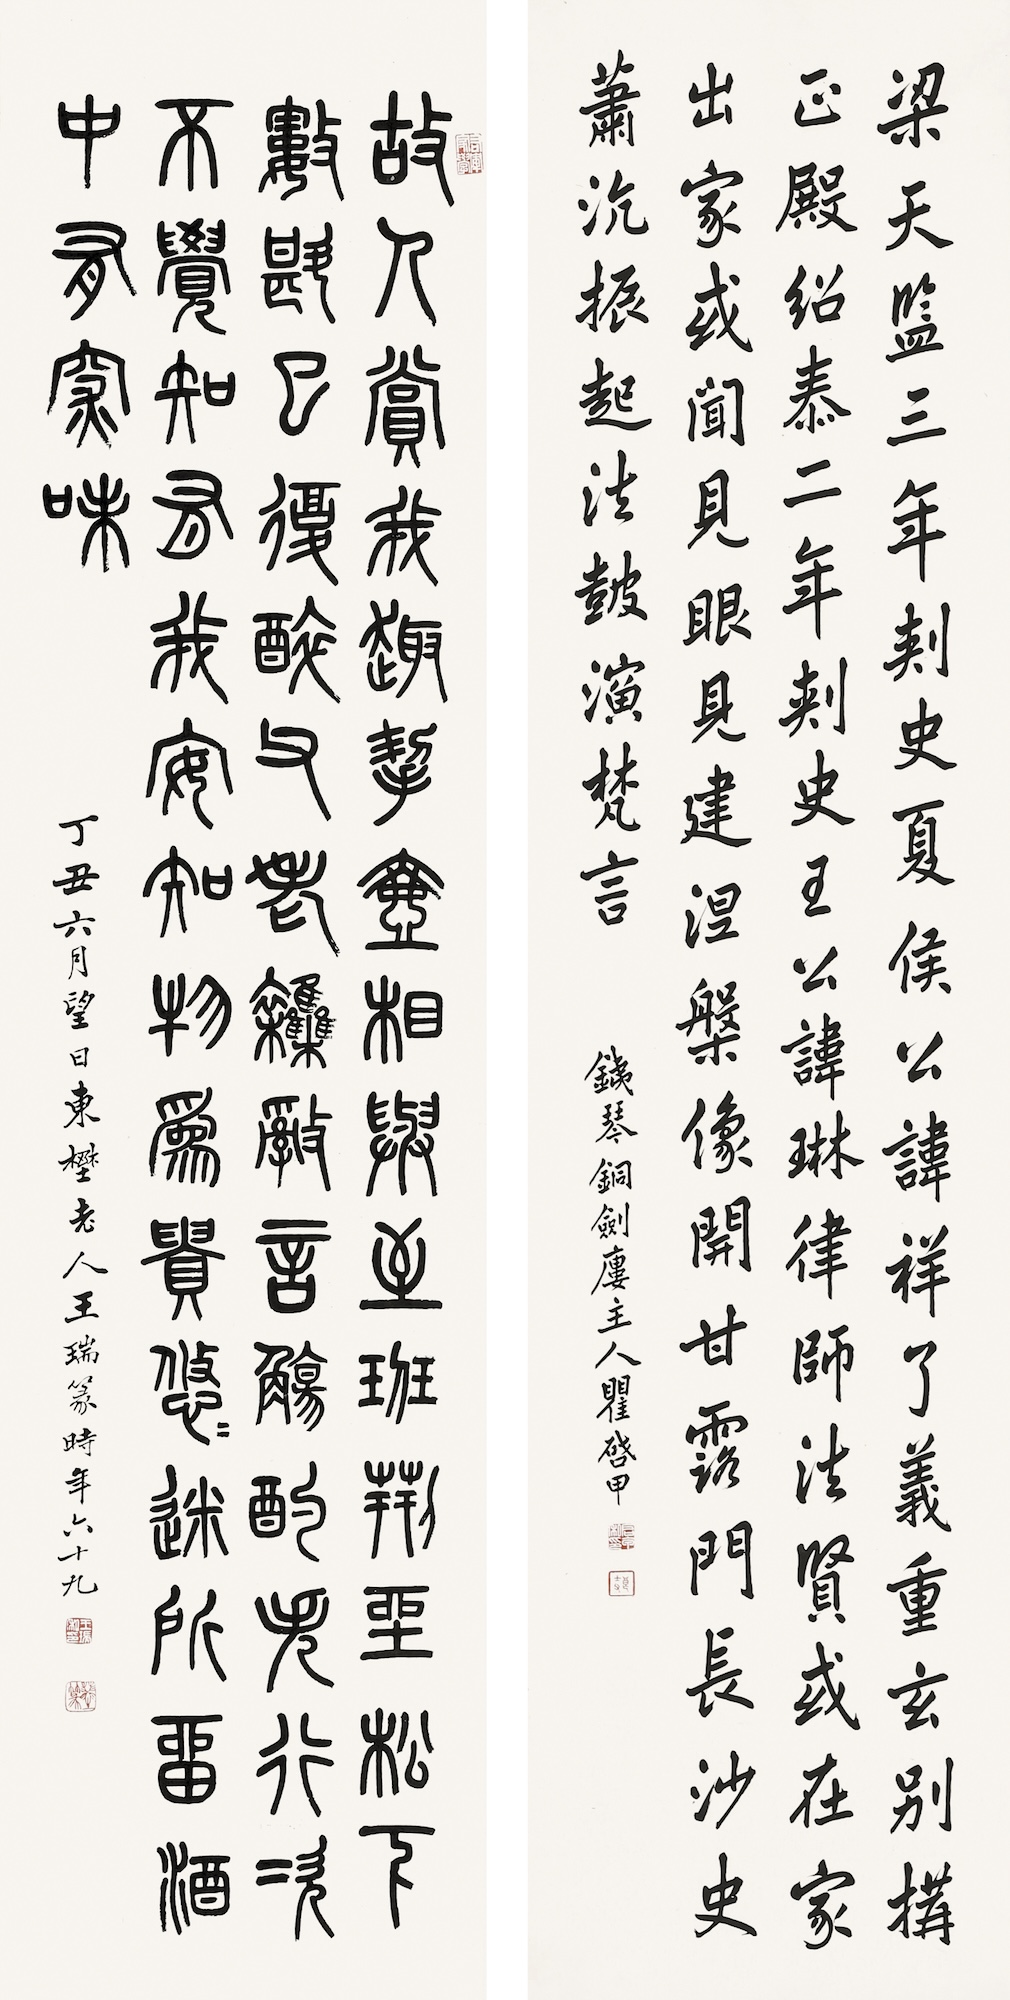 梁天監三年刺史夏侯公諱祥了義重玄別構
正殿紹泰二年刺史王公諱琳律師法賢或在家
出家或聞見眼見建涅槃像開甘露門長沙史
蕭沇振起法鼓演梵言
鐵琴銅劍廔主人瞿啓甲
故人賞我趣挈壺相與至班荊坐松下
數斟已復醉父老雜亂言觴酌失行次
不覺知有我安知物為貴悠悠迷所留酒
中有深味
丁丑六月望日東埜老人王瑞篆時年六十九